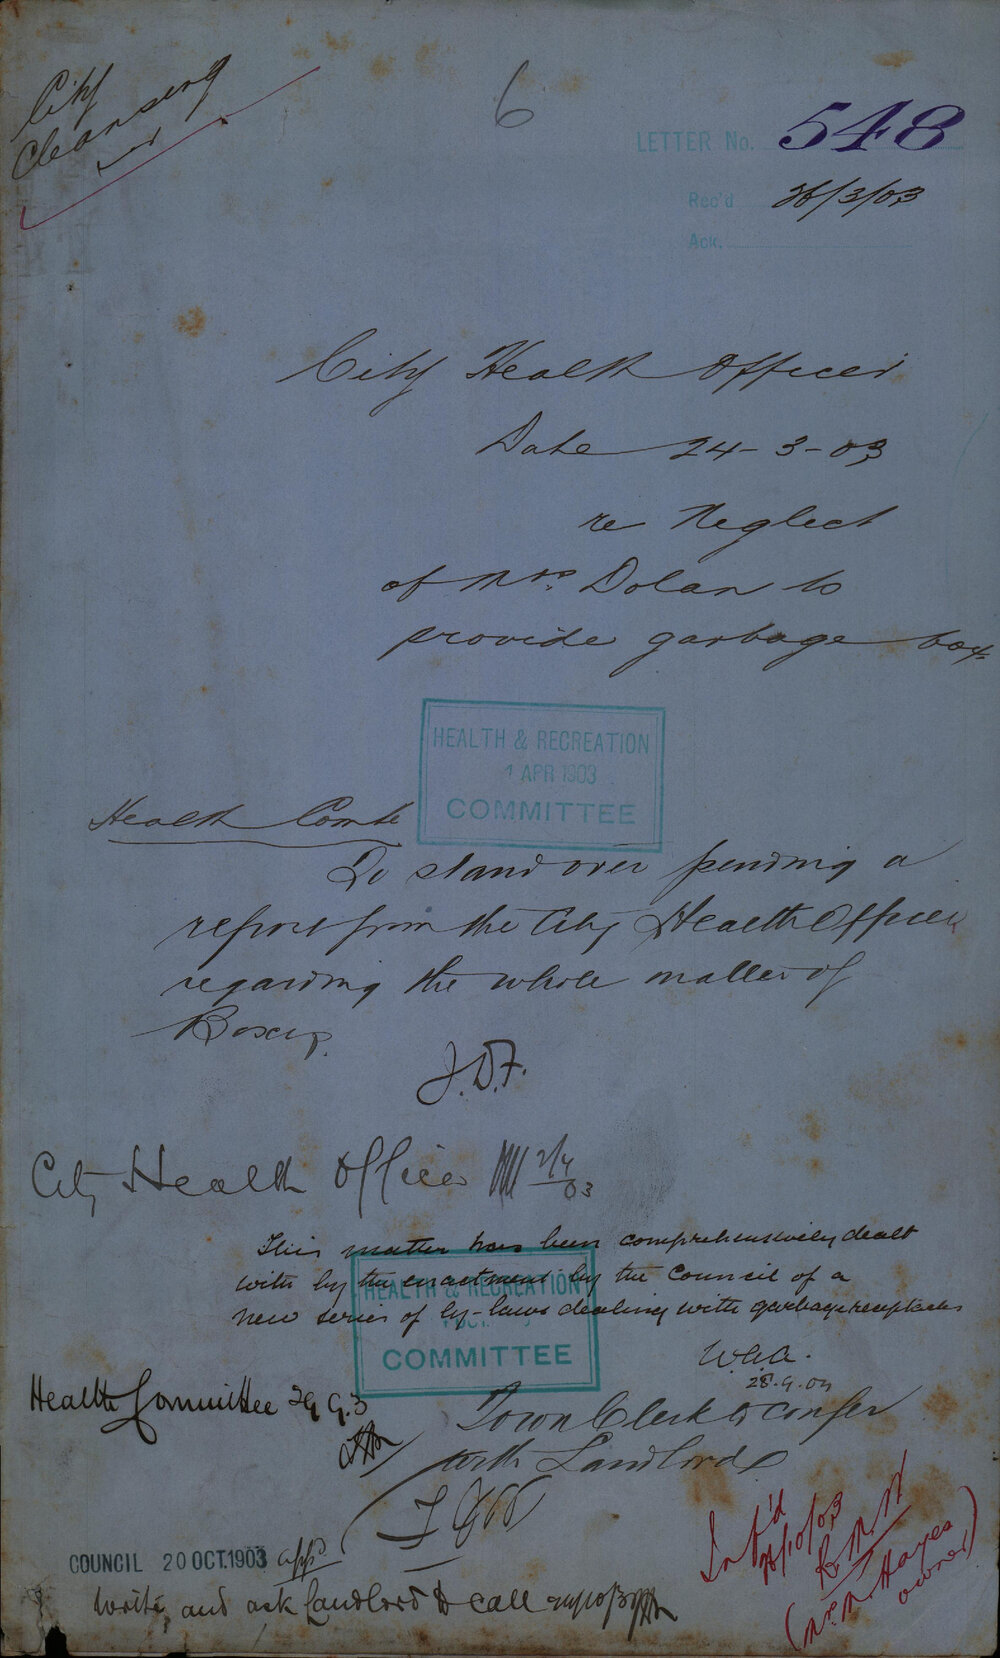 City
Cleansing
6
LETTER No. 548
Rec'd 26/3/03
Ack.
City Health Officer
Date 24-3-03
re Neglect
of Mrs. Dolan to
provide garbage box.
HEALTH & RECREATION
1 APR 1903
COMMITTEE
Health Comte
To stand over pending a
report from the City Health Officer
regarding the whole matter of
Boxes.
J.D.F.
City Health Officer 2/4/03
This matter has been comprehensively dealt
with by the enactment by the Council of a
new series of by-laws dealing with garbage receptacles
HEALTH & RECREATION
COMMITTEE
W.G.A.
Health Committee 29 9.3
Town Clerk to confer
with Landlord
COUNCIL 20 OCT. 1903 appd
Write, and ask Landlord to call
Int'd
(Mr. M. Hayes
owner)